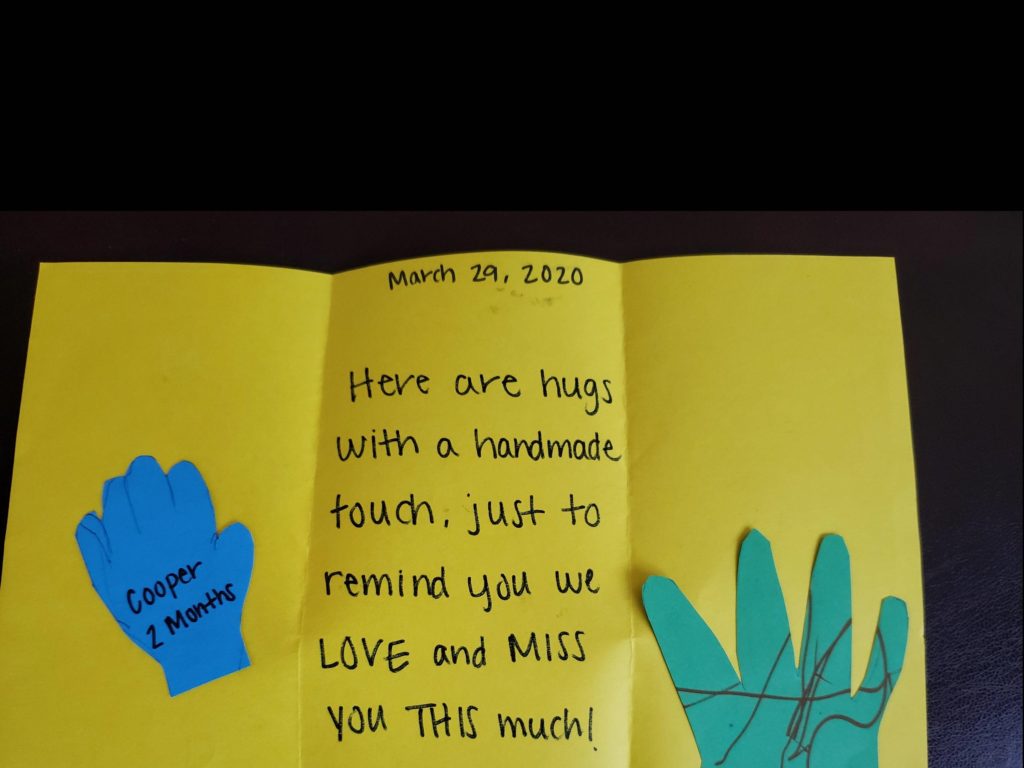 March 29, 2020
Here are hugs
with a handmade
touch, just to
remind you we
LOVE and MISS
you THIS much!
Cooper
2 Months